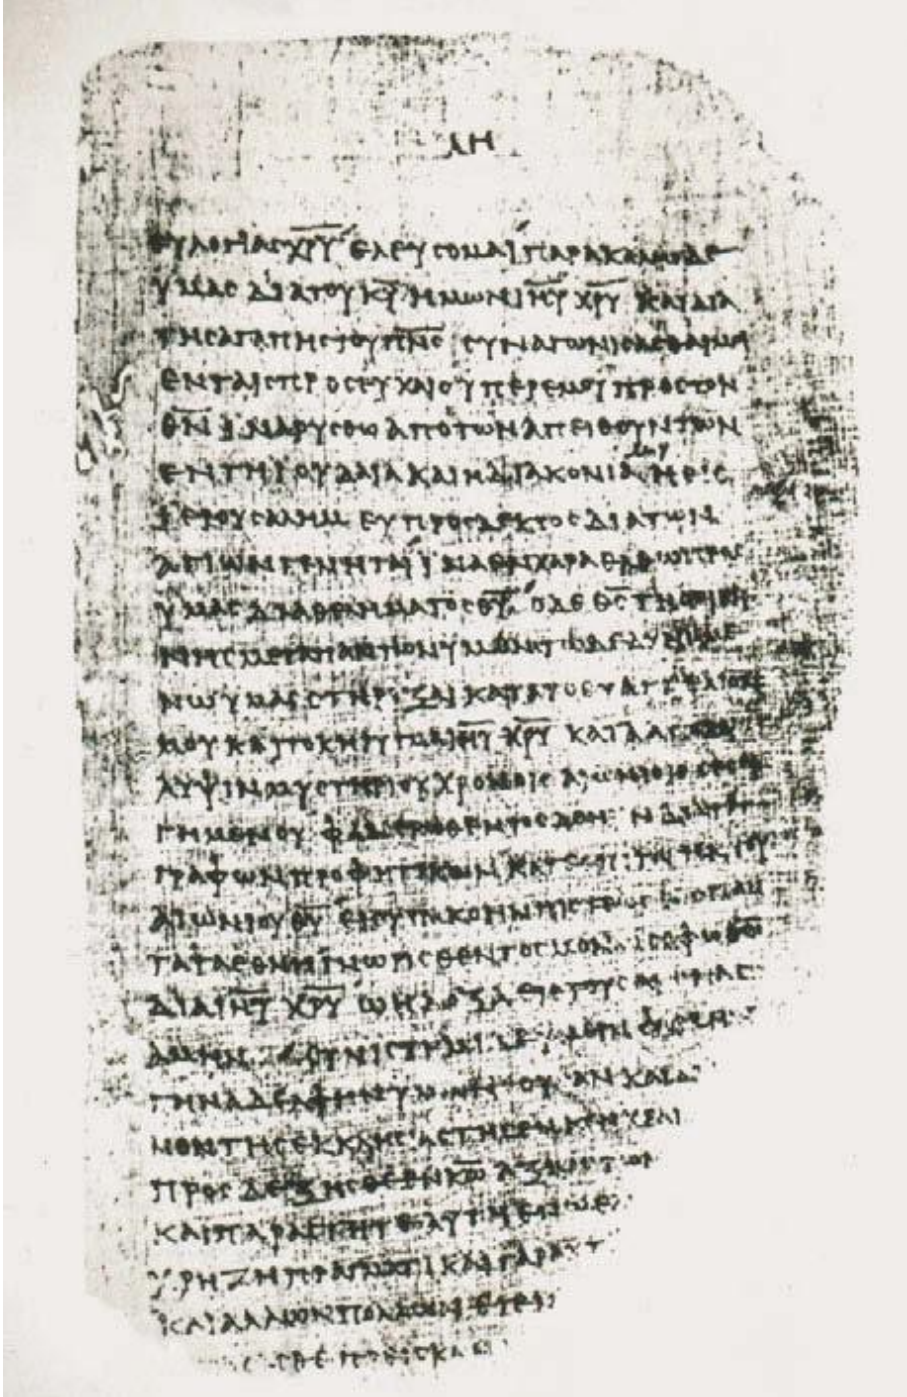 ΛΗ
ΕΥΛΟΓΙΑϹΧ̅Ρ̅Υ̅ΕΛΕΥϹΟΜΑΙΠΑΡΑΚΑΛΩΔΕ
ΥΜΑϹΔΙΑΤΟΥΚ̅Υ̅ΗΜΩΝΙ̅Η̅Υ̅Χ̅Ρ̅Υ̅ΚΑΙΔΙΑ
ΤΗϹΑΓΑΠΗϹΤΟΥΠ̅Ν̅Ϲ̅ϹΥΝΑΓΩΝΙϹΑϹΘΑΙΜΟΙ
ΕΝΤΑΙϹΠΡΟϹΕΥΧΑΙϹΥΠΕΡΕΜΟΥΠΡΟϹΤΟΝ
Θ̅Ν̅ΙΝΑΡΥϹΘΩΑΠΟΤΩΝΑΠΕΙΘΟΥΝΤΩΝ
ΕΝΤΗΙΟΥΔΑΙΑΚΑΙΗΔΙΑΚΟΝΙΑΜΟΥΗΕΙϹ
ΙΕΡΟΥϹΑΛΗΜΕΥΠΡΟϹΔΕΚΤΟϹΔΙΑΤΩΝ
ΑΓΙΩΝΓΕΝΗΤΑΙΙΝΑΕΝΧΑΡΑΕΛΘΩΠΡΟϹ
ΥΜΑϹΔΙΑΘΕΛΗΜΑΤΟϹΘ̅Υ̅ΟΔΕΘ̅Ϲ̅ΤΗϹΕΙΡΗ
ΝΗϹΜΕΤΑΠΑΝΤΩΝΥΜΩΝΤΩΔΕΔΥΝΑΜΕ
ΝΩΥΜΑϹϹΤΗΡΙΞΑΙΚΑΤΑΤΟΕΥΑΓΓΕΛΙΟΝ
ΜΟΥΚΑΙΤΟΚΗΡΥΓΜΑΙ̅Η̅Υ̅Χ̅Ρ̅Υ̅ΚΑΤΑΑΠΟΚΑ
ΛΥΨΙΝΜΥϹΤΗΡΙΟΥΧΡΟΝΟΙϹΑΙΩΝΙΟΙϹϹΕϹΕΙ
ΓΗΜΕΝΟΥΦΑΝΕΡΩΘΕΝΤΟϹΔΕΝΥΝΔΙΑΤΕ
ΓΡΑΦΩΝΠΡΟΦΗΤΙΚΩΝΚΑΤΕΠΙΤΑΓΗΝΤΟΥ
ΑΙΩΝΙΟΥΘ̅Υ̅ΕΙϹΥΠΑΚΟΗΝΠΙϹΤΕΩϹΕΙϹΠΑΝ
ΤΑΤΑΕΘΝΗΓΝΩΡΙϹΘΕΝΤΟϹΜΟΝΩϹΟΦΩΘ̅Ω̅
ΔΙΑΙ̅Η̅Υ̅Χ̅Ρ̅Υ̅ΩΗΔΟΞΑΕΙϹΤΟΥϹΑΙΩΝΑϹ
ΑΜΗΝϹΥΝΙϹΤΗΜΙΔΕΥΜΙΝΦΟΙΒΗΝ
ΤΗΝΑΔΕΛΦΗΝΥΜΩΝΟΥϹΑΝΚΑΙΔΙΑ
ΚΟΝΟΝΤΗϹΕΚΚΛΗϹΙΑϹΤΗϹΕΝΚΕΝΧΡΕΑΙϹ
ΠΡΟϹΔΕΞΗϹΘΕΕΝΚ̅Ω̅ΑΞΙΩϹΤΩΝ
ΚΑΙΠΑΡΑϹΤΗΤΕΑΥΤΗΕΝΩΕ
ΧΡΗΖΗΠΡΑΓΜΑΤΙΚΑΙΓΑΡΑΥΤ
ΚΑΙΑΛΛΩΝΠΟΛΛΩΝΕΓΕΝ
ΠΡΕΙϹΚΑΝ